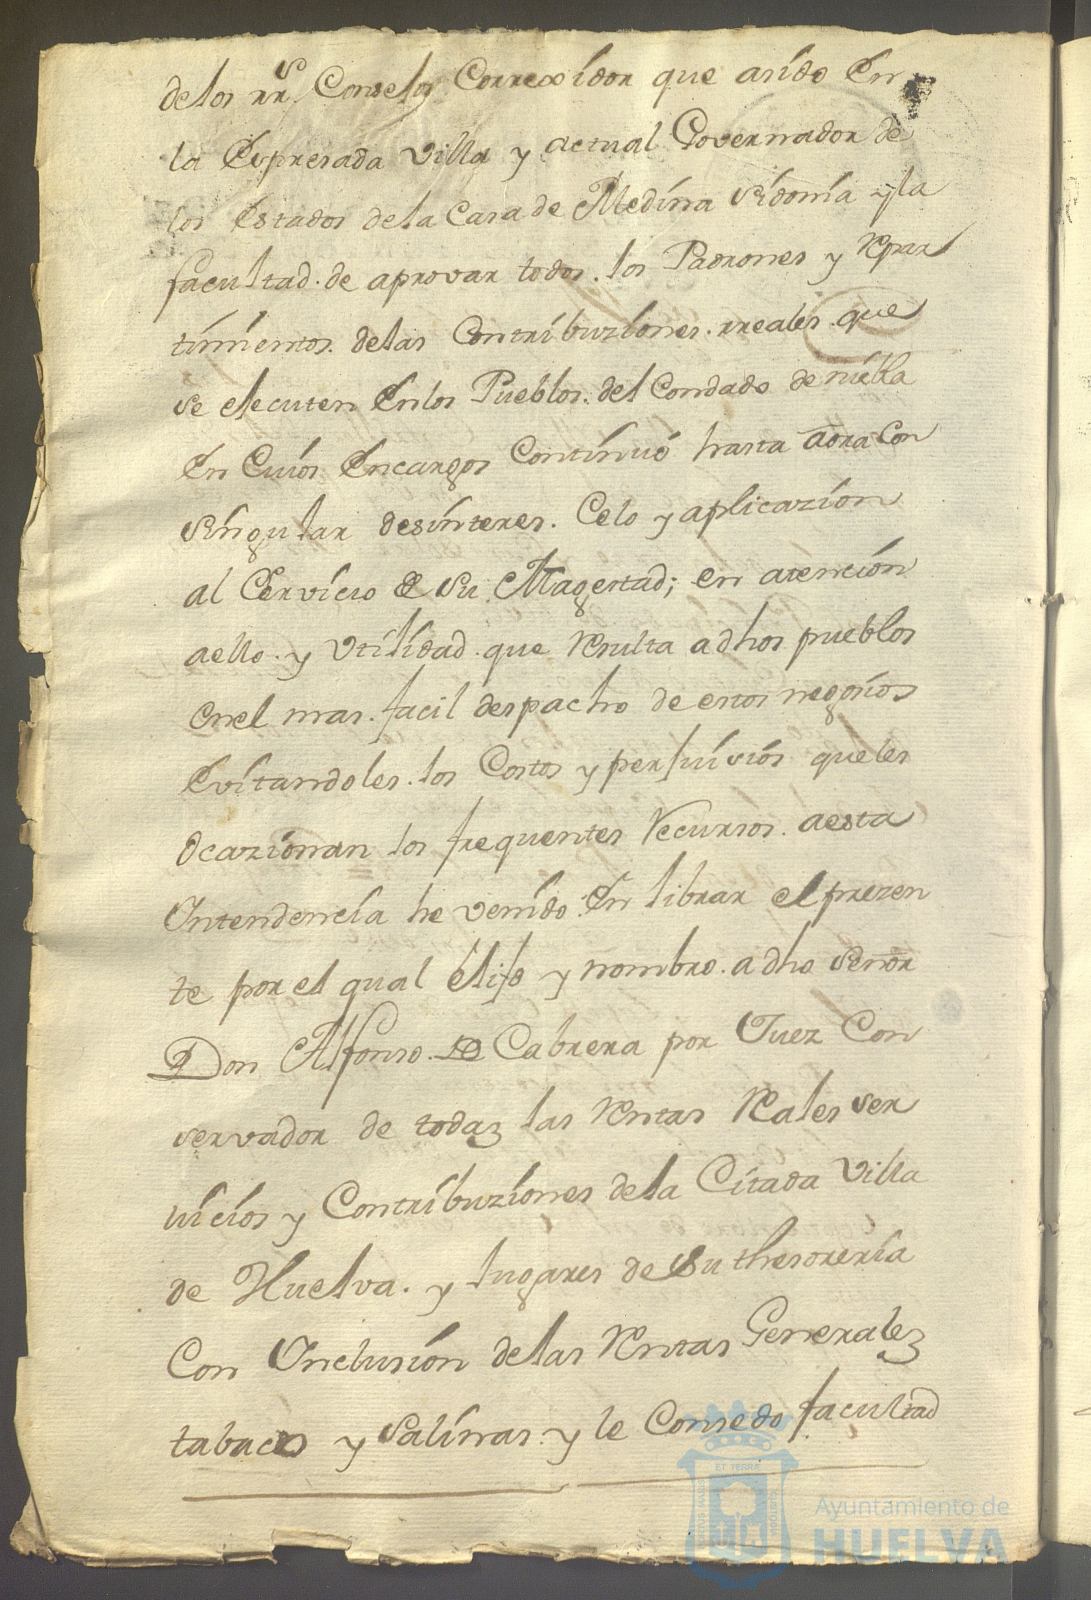 delos RR.s Conselos Correxidor que asido En
la Expresada Villa y actual Governador de
los Estados dela Casa de Medina Sidonia y la
facultad de aprovar todos los Padrones y Repar
timientos delas Contribuziones rreales que
se executen Enlos Pueblos del Condado de niebla
En Cuios Encargos Continuó hasta aora Con
Singular desinteres. Celo y aplicazion
al Cervicio de Su Magestad; en atencion
aello y Utilidad que Resulta a dhos pueblos
enel mas facil despacho de estos negocios
Evitandoles los Costos y perjuicios queles
Ocazionan los frequentes Recursos aesta
Intendencia he venido En librar el prezen
te por el qual Elijo y nombro a dho Señor
Don Alfonso de Cabrera por Juez Con
servador de todaz las Rentas Reales ser
vicios y Contribuziones dela Citada Villa
de Huelva. y lugares de Su thesoreria
Con Inclusion delas Rentas Generalez
tabacos y Salinas y le Consedo facultad
ET TERRÆ
Ayuntamiento de
HUELVA